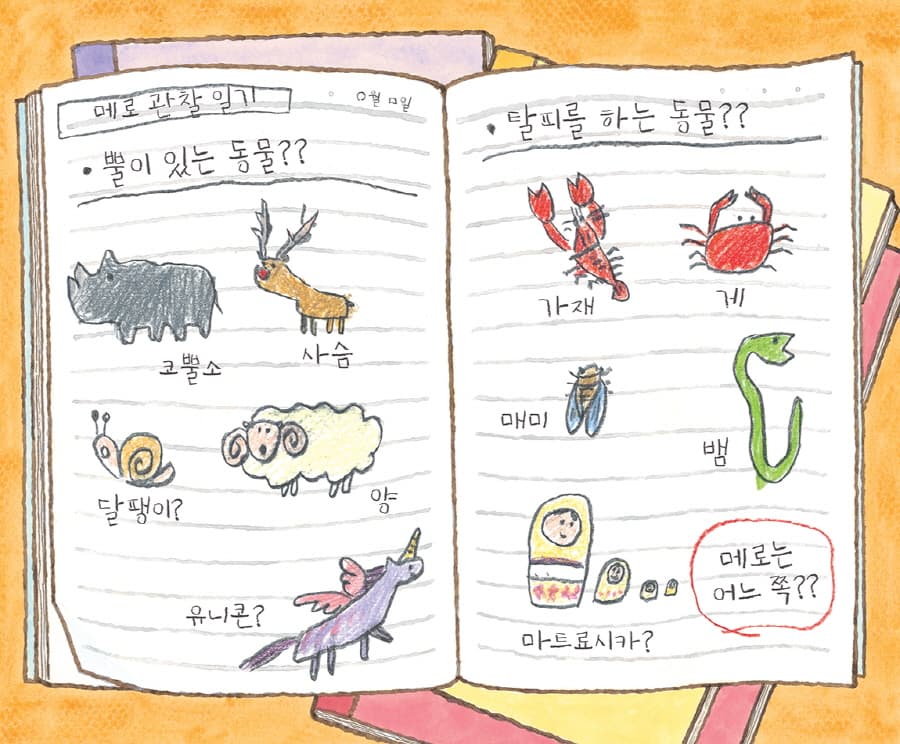 메로 관찰 일기
ㅇ월 ㅁ일
• 뿔이 있는 동물??
코뿔소
사슴
달팽이?
양
유니콘?
• 탈피를 하는 동물??
가재
게
매미
뱀
마트료시카?
메로는
어느 쪽??